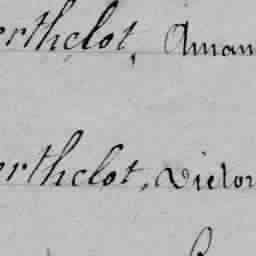 erthelot, Aman
erthelot, Victor